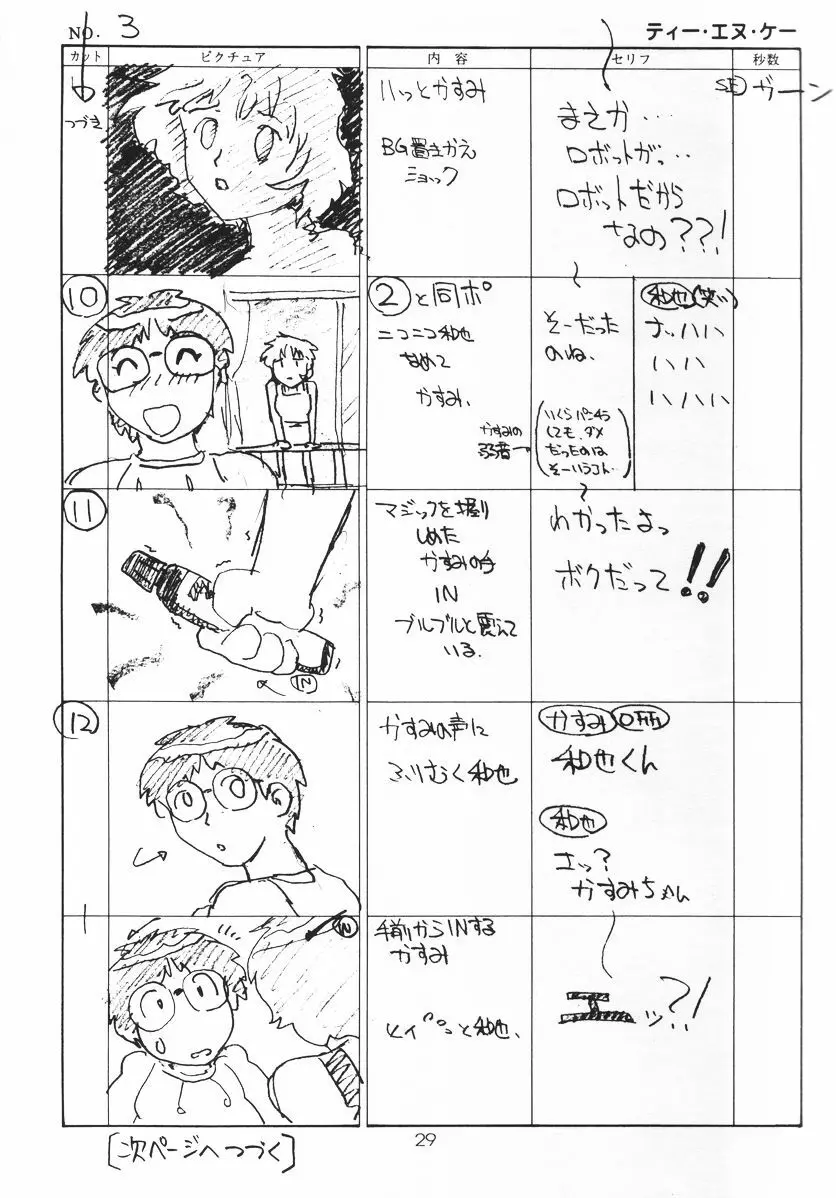 NO. 3
ティー・エヌ・ケー
カット ピクチュア 内容 セリフ 秒数
つづき
ハッとかすみ
BG置きかえ
ショック
まえが・・
ロボットが・・・
ロボットだから
なの??!
SE ガーン
10
②と同ポ
ニコニコ和也
なめて
かすみ、
そーだった
のね、
かすみの
いくらパンチラ
しても、ダメ
だったのは
そーいうコト…
和也(笑い)
ハハ
11
マジックを握り
しめた
かすみの手
IN
ブルブルと震えて
いる。
わかったよっ
ボクだって!!
IN
12
かすみの声に
ふりむく和也
かすみ
和也くん
和也
えッ?
かすみちゃん
IN
手前からINする
かすみ
と和也、
エッ?!
29
[次ページへつづく]